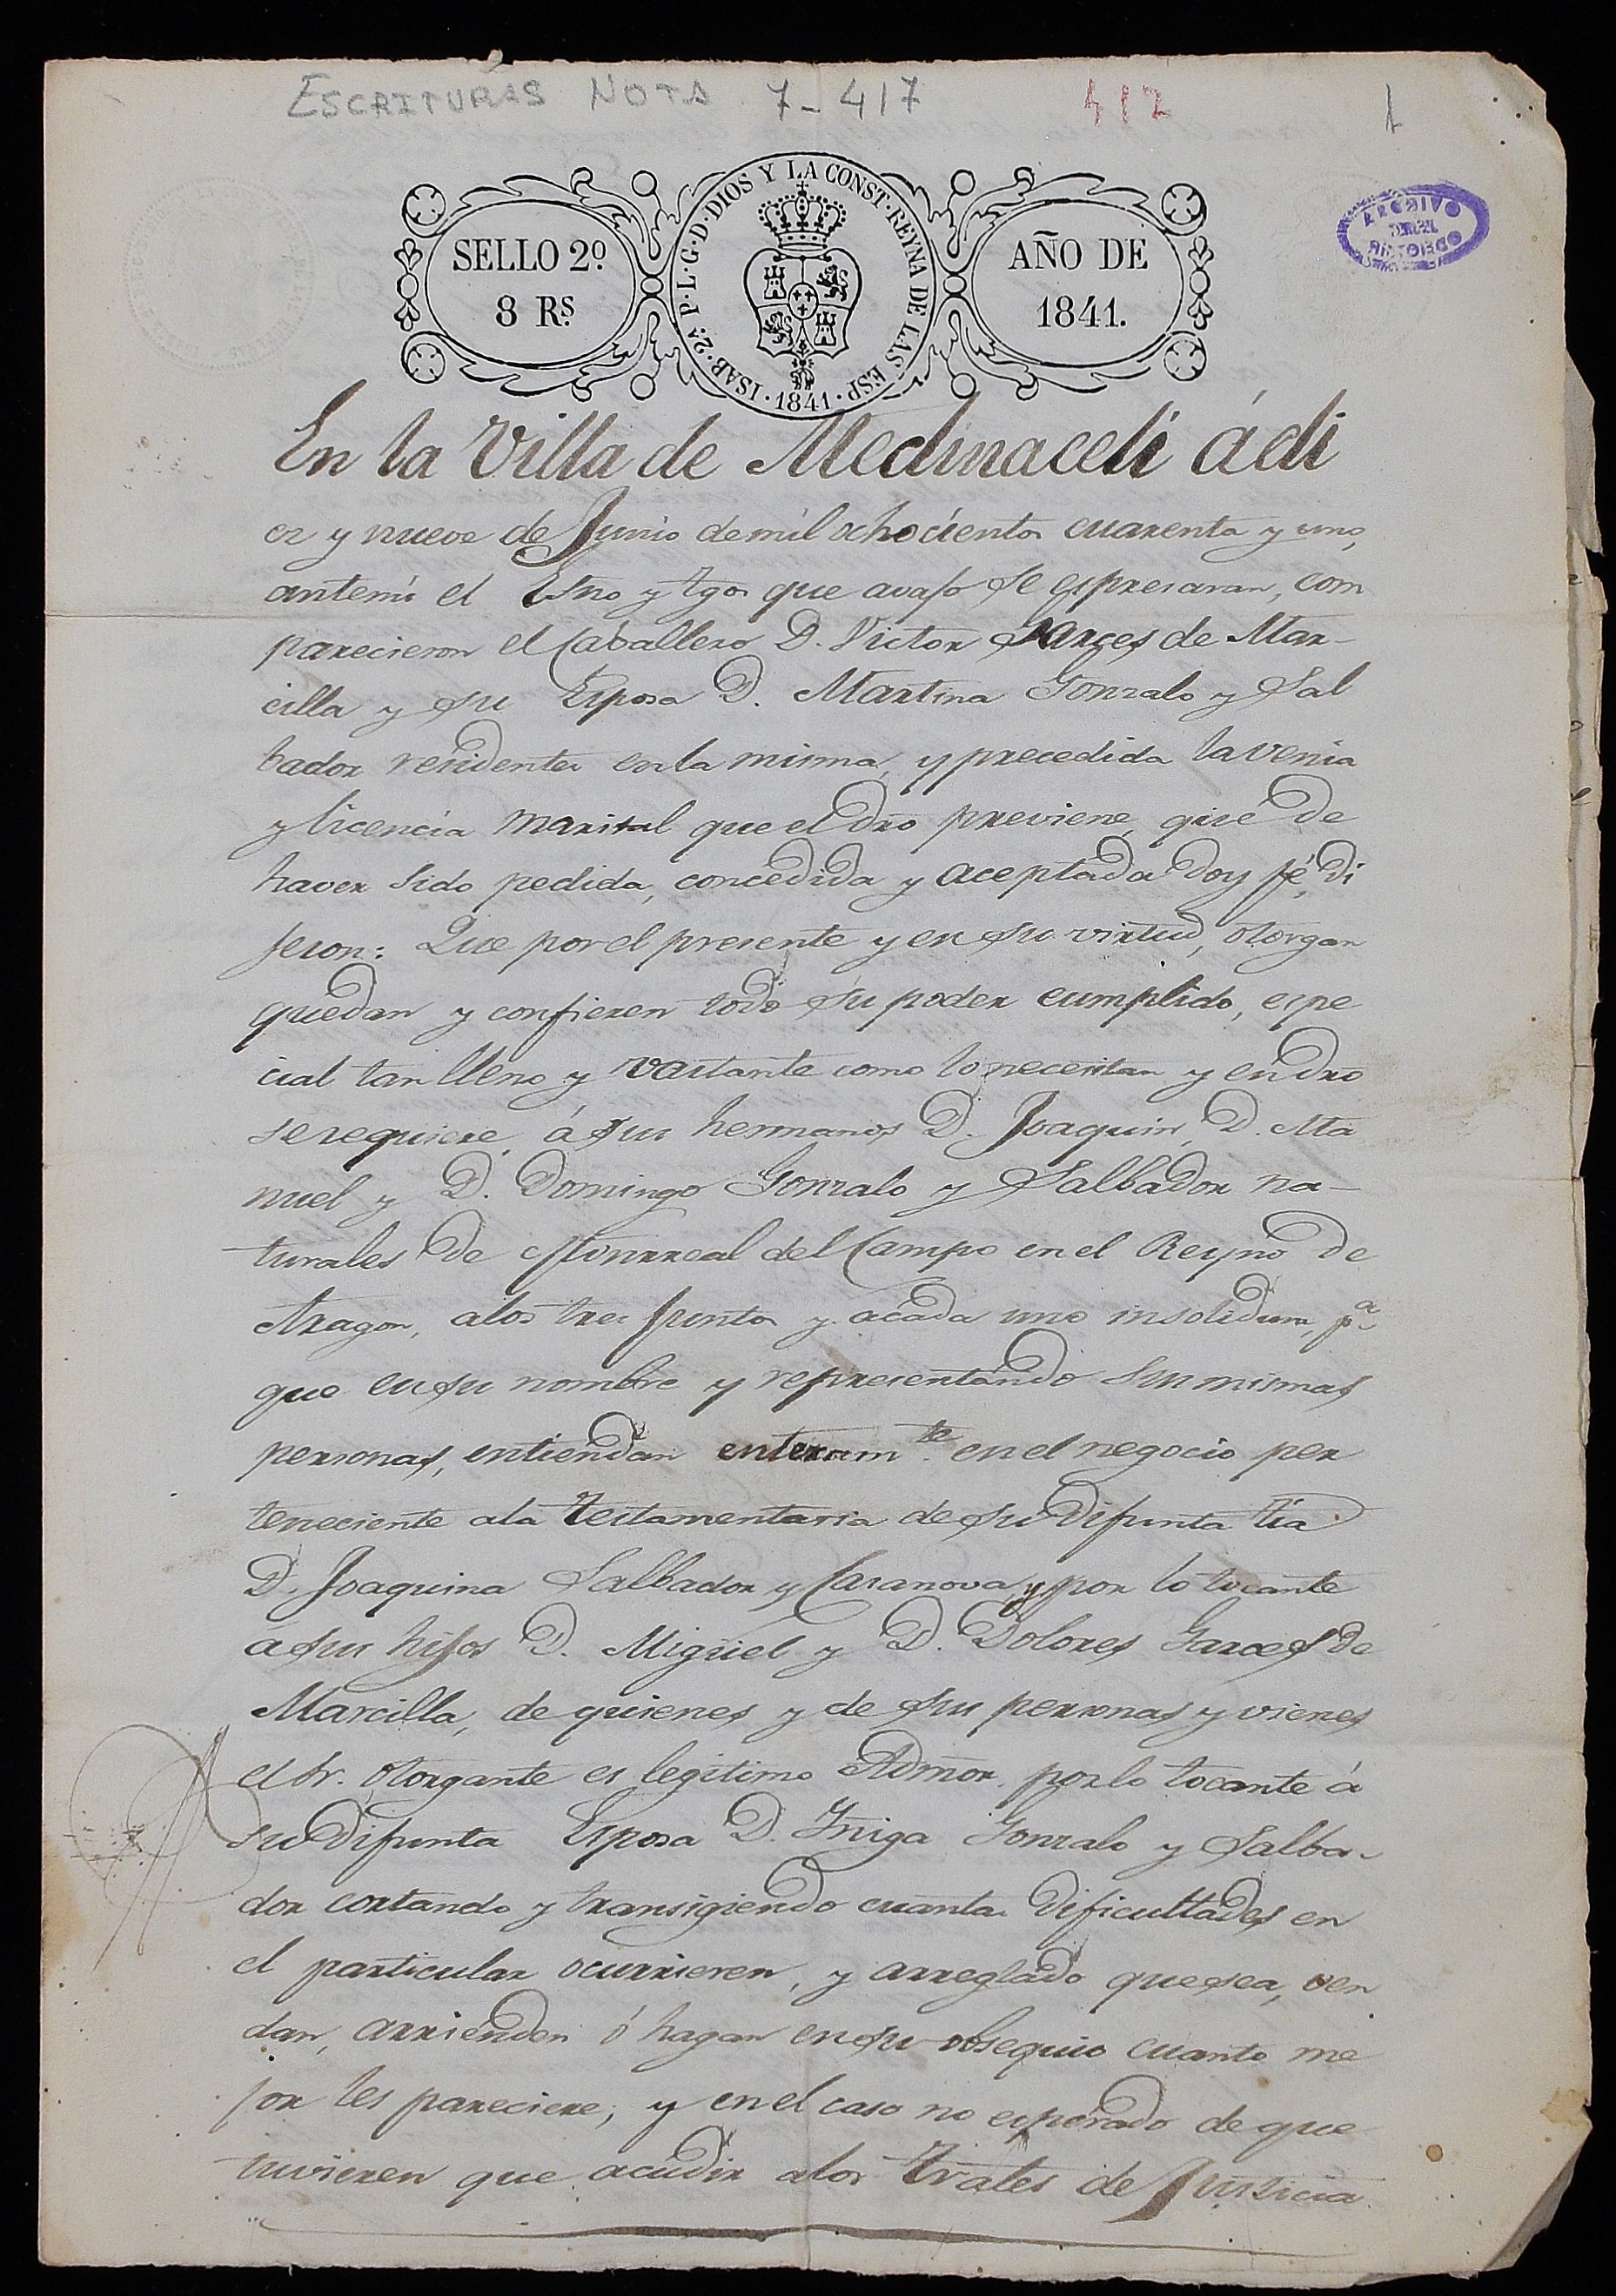 ESCRITURAS NOTA 7-417 412 1
ISAB. 2ª P. L. G. D. DIOS Y LA CONST. REYNA DE LAS ESP. 1841.
SELLO 2º
8 Rs.
AÑO DE
1841.
ARCHIVO
HISTORICO
En la Villa de Medinaceli á di
ez y nueve de Junio de mil ochocientos cuarenta y uno,
antemi el Esno y tgos que avajo se espresaran, com
parecieron el Caballero D. Victor Garces de Mar-
cilla y su Esposa D. Martina Gonzalo y Sal
bador residentes en la misma, y precedida la venia
y licencia marital que el dro previene, qué de
haver sido pedida, concedida y aceptada doy fé, di
jeron: Que por el presente y en su virtud, otorgan
quedan y confieren todo su poder cumplido, espe
cial tan lleno y vastante como lo necesitan y en dro
se requiere, á sus hermanos D. Joaquin, D. Ma
nuel y D. Domingo Gonzalo y Salbador na-
turales de Monrreal del Campo en el Reyno de
Aragon, alos tres juntos y acada uno insolidum, pª
que en su nombre y representando sus mismas
personas, entiendan enteramte. en el negocio per
teneciente ala testamentaria de su difunta tia
D. Joaquina Salbador y Casanova, y por lo tocante
a sus hijos D. Miguel y D. Dolores Garces de
Marcilla, de quienes y de sus personas y vienes
el Sr. otorgante es legitimo Admor. por lo tocante á
su difunta Esposa D. Yniga Gonzalo y Salba-
dor cortando y transigiendo cuantas dificultades en
el particular ocurrieren, y arreglado que sea, ven
dan, arrienden ó hagan en su obsequio cuanto me
jor les pareciere; y en el caso no esperado de que
tuvieren que acudir alos Trales de Justicia